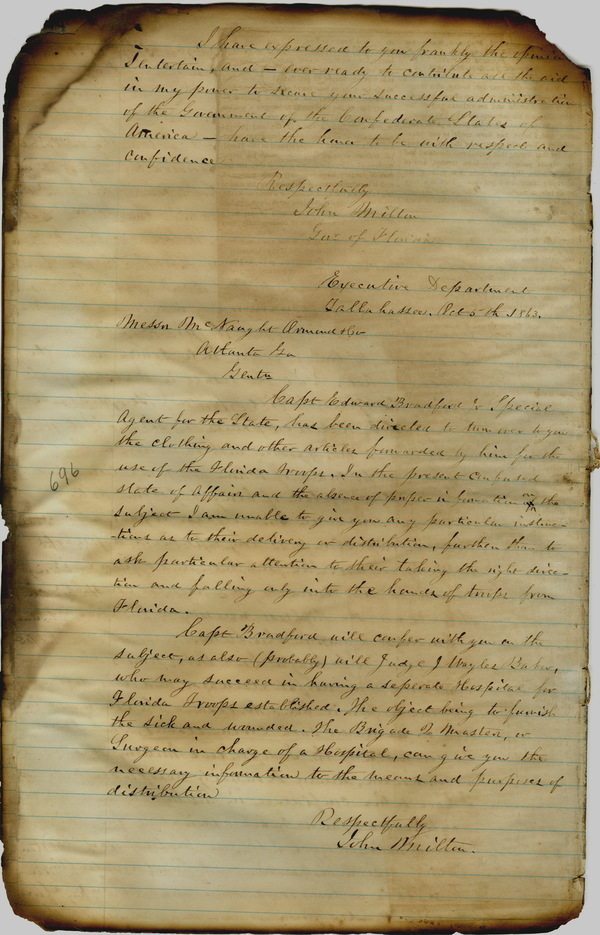 I have expressed to you frankly the opinion
I entertain, and — ever ready to contribute all the aid
in my power to secure your successful administration
of the Government of the Confederate States of
America — have the honor to be with respect and
confidence
Respectfully
John Milton
Gov. of Florida
Executive Department
Tallahassee, Oct 5th 1863.
Messrs McNaught Ormond & Co
Atlanta Ga
Gentn
Capt Edward Bradford Special
Agent for the State, has been directed to turn over to you
the clothing and other articles forwarded by him for the
use of the Florida Troops. In the present confused
state of Affairs and the absence of proper information on the
subject I am unable to give you any particular instruc-
-tions as to their delivery or distribution, further than to
ask particular attention to their taking the right direc-
tion and falling only into the hands of troops from
Florida.
696
Capt Bradford will confer with you on the
subject, as also (probably) will Judge J Wayles Baker,
who may succeed in having a seperate Hospital for
Florida Troops established. The object being to furnish
the sick and wounded. The Brigade Q Master, or
Surgeon in charge of a Hospital, can give you the
necessary information to the means and purposes of
distribution
Respectfully
John Milton.